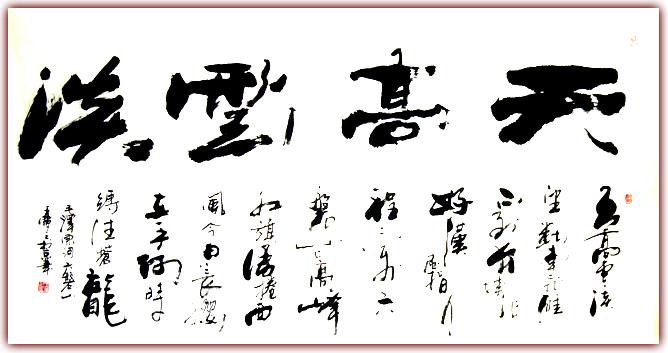 天高雲淡
天高雲淡
望斷南飛雁
不到長城非
好漢屈指行
程二万六
盤山高峰
紅旗漫捲西
風今日長纓
在手何時
縛住蒼龍
毛澤東詞六盤山